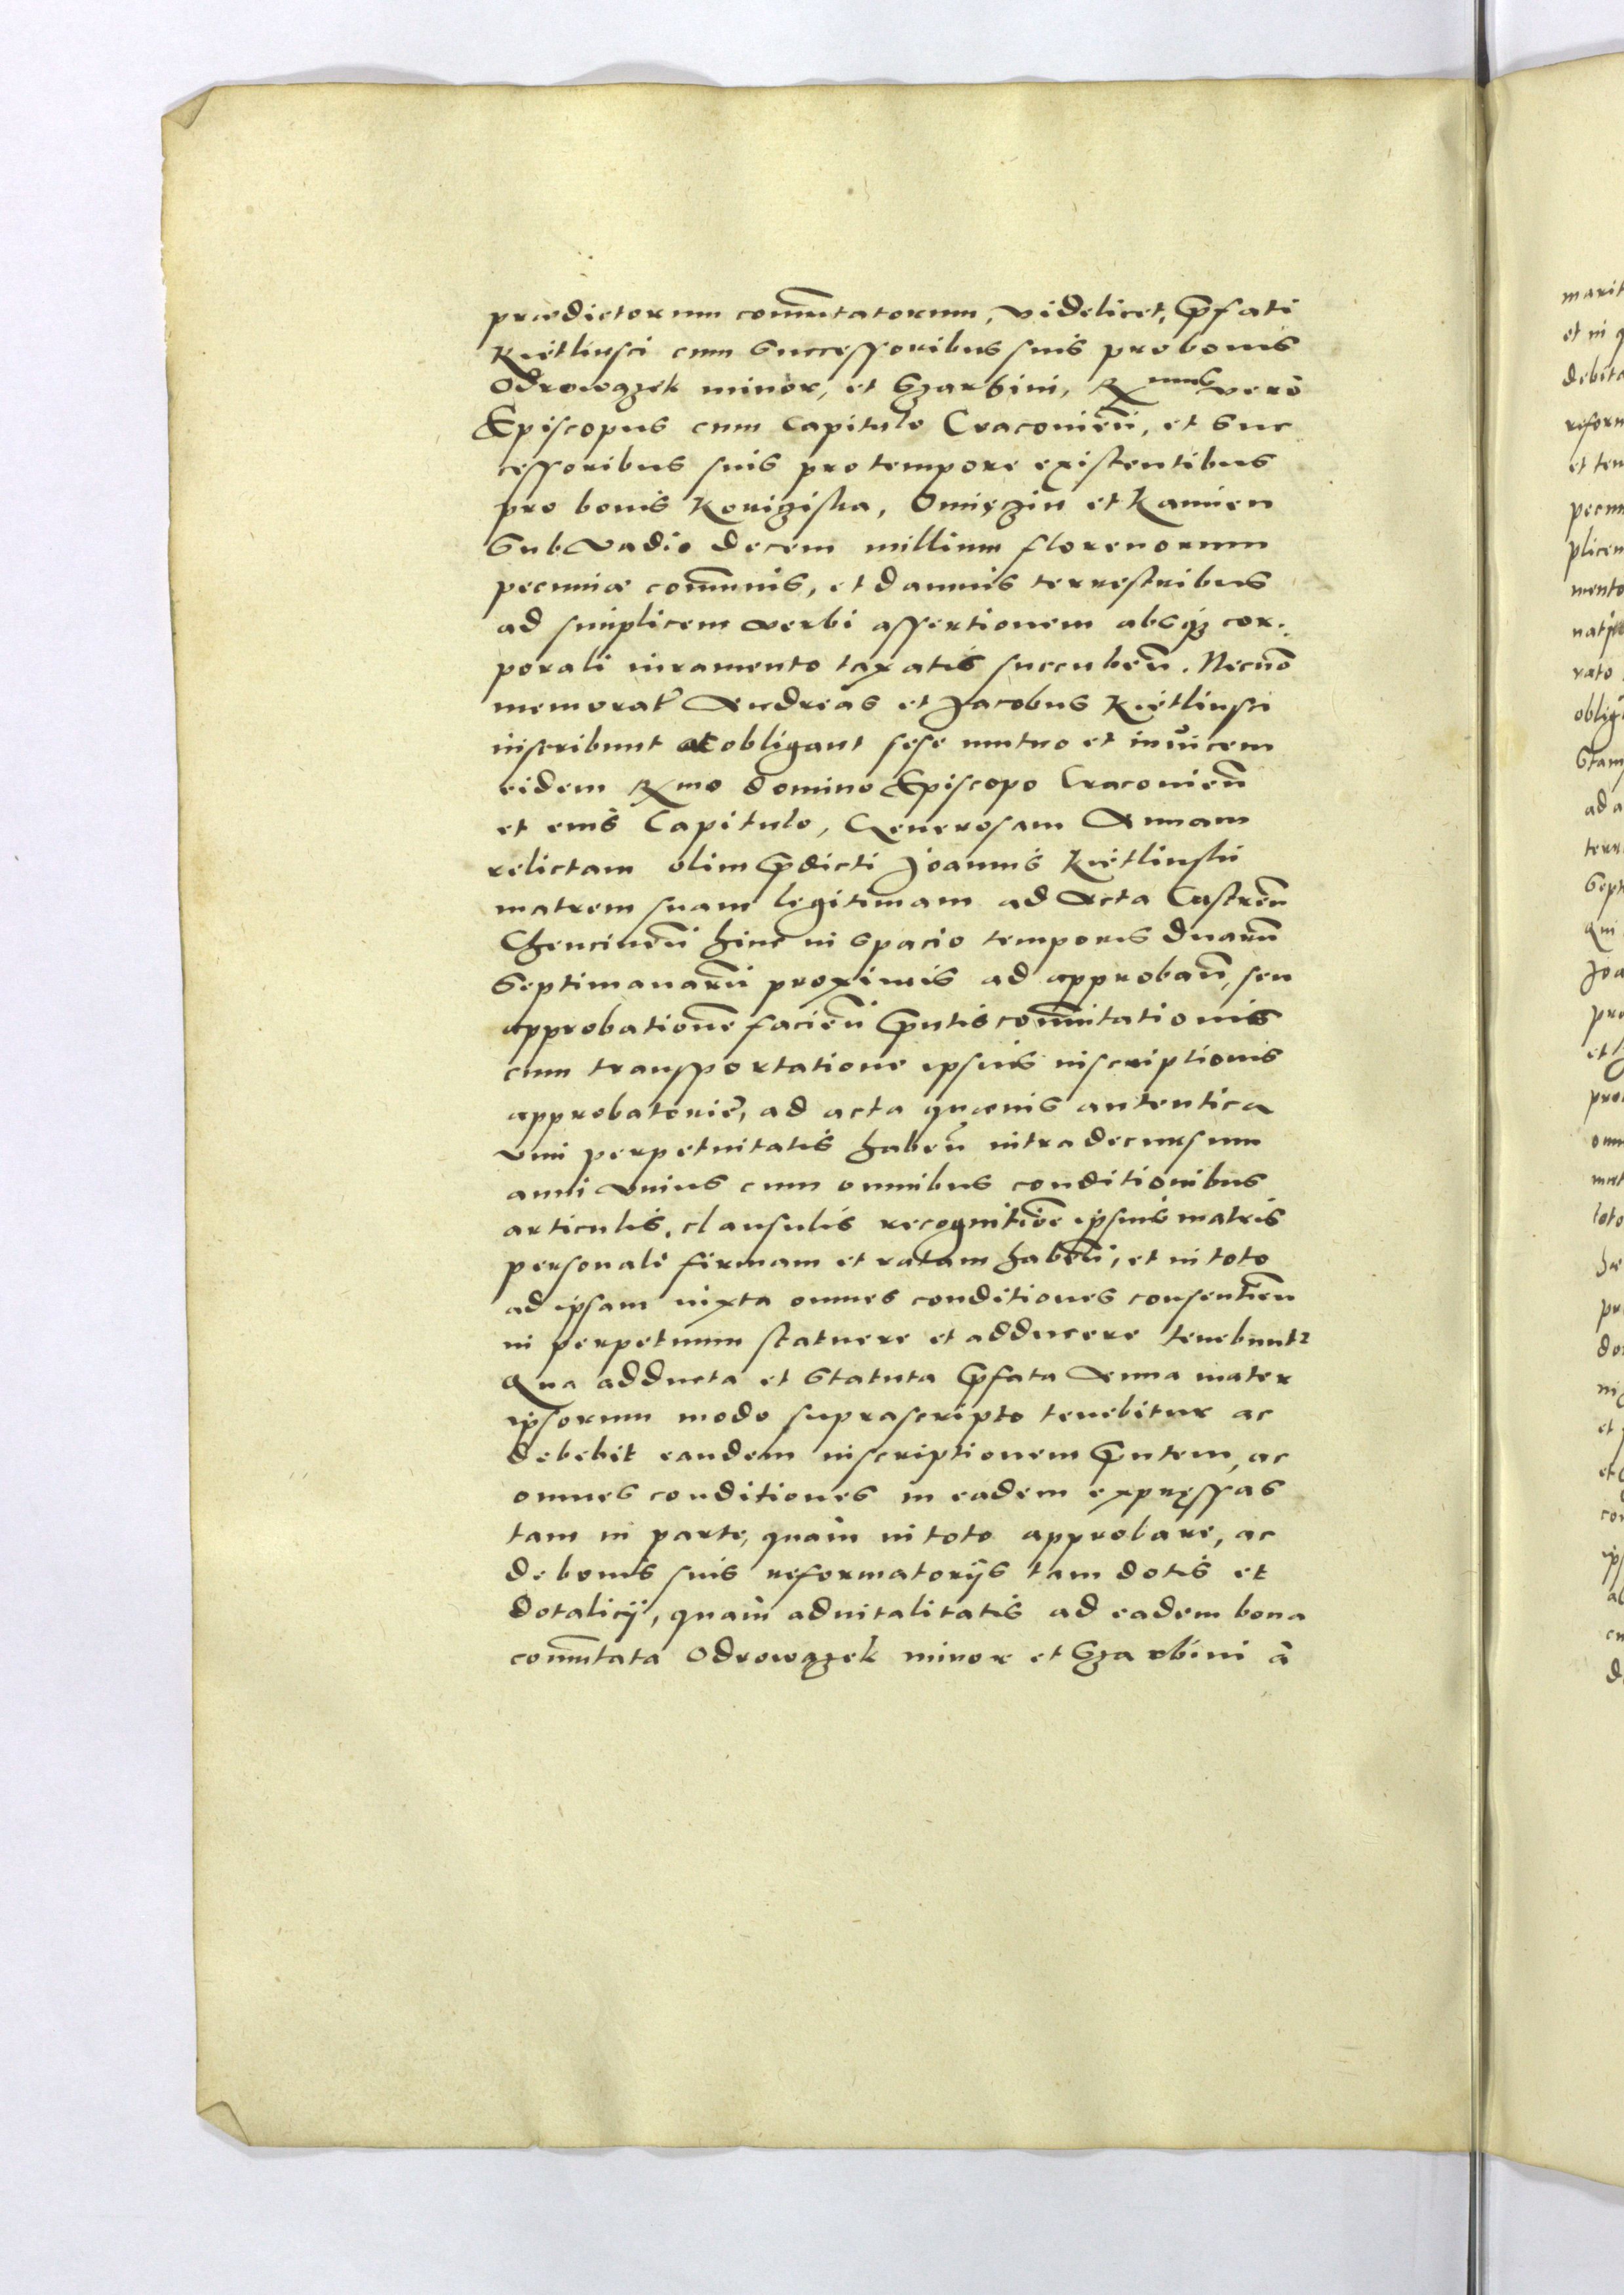 prædictorum com̄utatorum, videlicet, p̄fati
Kietlinsci cum Successoribus suis pro bonis
Odrowązek minor, et Szarbini, R mus vero
Episcopus cum Capitulo Cracovieñ, et Suc
cessoribus suis pro tempore existentibus
pro bonis Koniziska, Omięzin et Kamien
Sub vadio decem millium florenorum
pecuniæ com̄unis, et damnis terrestribus
ad simplicem verbi assertionem absq₃ cor.
porali iuramento taxatis succubeñ. Necnō
memorat̃ Andreas et Jacobus Kietlinsci
inscribunt ac obligant sese mutuo et inuicem
eidem Rmo domino Episcopo Cracovieñ
et eius Capitulo, Generosam Annam
relictam olim p̄dicti Joannis Kietlinski
matrem suam legitimam ad Acta Castreñ
Chencineñ hinc in spacio temporis duarū
Septimanarū proximis ad approbañ, seu
approbationē facieñ p̄ntis com̄utationis
cum transportatione ipsius inscriptionis
approbatoriē, ad acta quævis autentica
vim perpetuitatis habeñ intra decursum
anni vnius cum omnibus conditionibus
articulis, clausulis recognitionē ipsius matris
personali firmam et ratam habeñ, et in toto
ad ipsam iuxta omnes conditiones consentieñ
in perpetuum statuere et adducere tenebunt²
Qua adducta et Statuta p̄fata Anna mater
ipsorum modo suprascripto tenebitur ac
debebit eandem inscriptionem p̄ntem, ac
omnes conditiones in eadem expręssas
tam in parte, quàm in toto approbare, ac
de bonis suis reformatorijs tam dotis et
dotalicij, quàm aduitalitatis ad eadem bona
com̄utata Odrowązek minor et Szarbini à